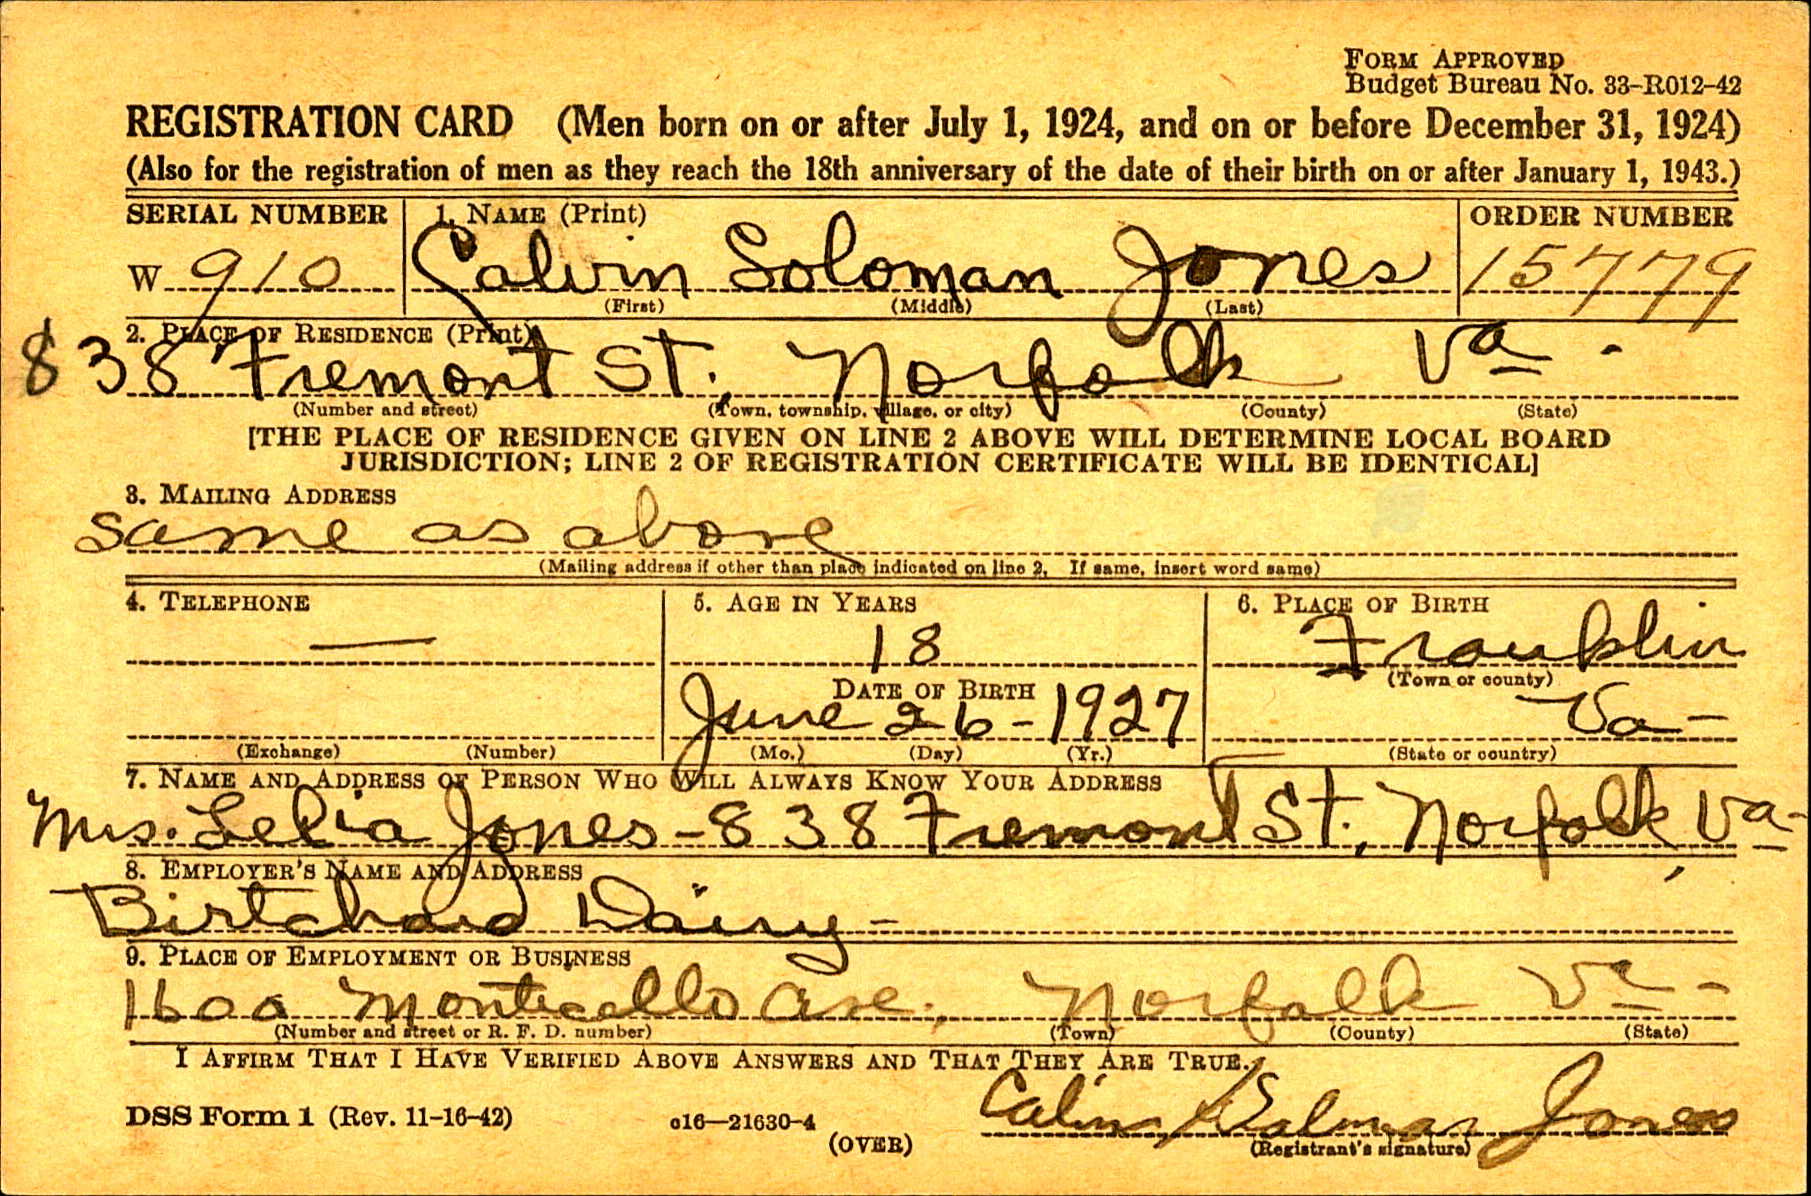 FORM APPROVED
Budget Bureau No. 33–R012–42
REGISTRATION CARD (Men born on or after July 1, 1924, and on or before December 31, 1924)
(Also for the registration of men as they reach the 18th anniversary of the date of their birth on or after January 1, 1943.)
SERIAL NUMBER 1. NAME (Print) ORDER NUMBER
W 910 Calvin Soloman Jones 15779
(First) (Middle) (Last)
2. PLACE OF RESIDENCE (Print)
838 Fremont St., Norfolk Va.
(Number and street) (Town, township, village, or city) (County) (State)
[THE PLACE OF RESIDENCE GIVEN ON LINE 2 ABOVE WILL DETERMINE LOCAL BOARD
JURISDICTION; LINE 2 OF REGISTRATION CERTIFICATE WILL BE IDENTICAL]
3. MAILING ADDRESS
same as above
(Mailing address if other than place indicated on line 2. If same, insert word same)
4. TELEPHONE 5. AGE IN YEARS 6. PLACE OF BIRTH
— 18 Franklin
(Town or county)
DATE OF BIRTH
June 26-1927 Va-
(Exchange) (Number) (Mo.) (Day) (Yr.) (State or country)
7. NAME AND ADDRESS OF PERSON WHO WILL ALWAYS KNOW YOUR ADDRESS
Mrs. Lelia Jones-838 Fremont St., Norfolk, Va-
8. EMPLOYER'S NAME AND ADDRESS
Birtchard Dairy-
9. PLACE OF EMPLOYMENT OR BUSINESS
1600 Monticello Ave., Norfolk Va-
(Number and street or R. F. D. number) (Town) (County) (State)
I AFFIRM THAT I HAVE VERIFIED ABOVE ANSWERS AND THAT THEY ARE TRUE.
DSS Form 1 (Rev. 11-16-42) c16—21630-4 Calvin Jones
(OVER) (Registrant's signature)